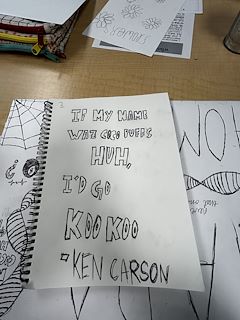 IF MY NAME
WAZ COCO PUFFS
HUH,
I'D GO
KOO KOO
-KEN CARSON